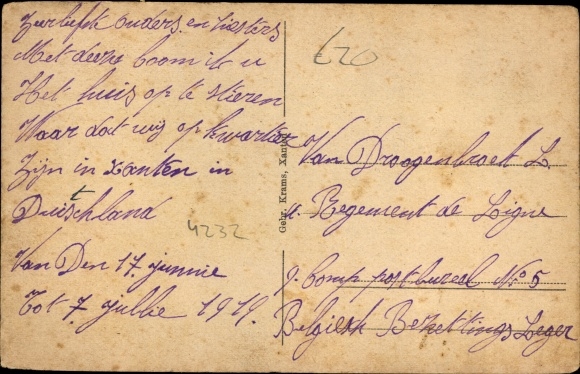 Zeerliefste ouders en zusters
Met deeze koom ik u
Het huis op te stieren
Waar dat wij op kwartier
Zijn in Xanten in
Duitschland
Van Den 17 junnie
Tot 7 jullie 1919.
4232
£20
Gebr. Krams, Xanten
Van Droogenbroek L.
Regement de Ligne
comp postbureel No 5
Belgiesk Bezettings Leger